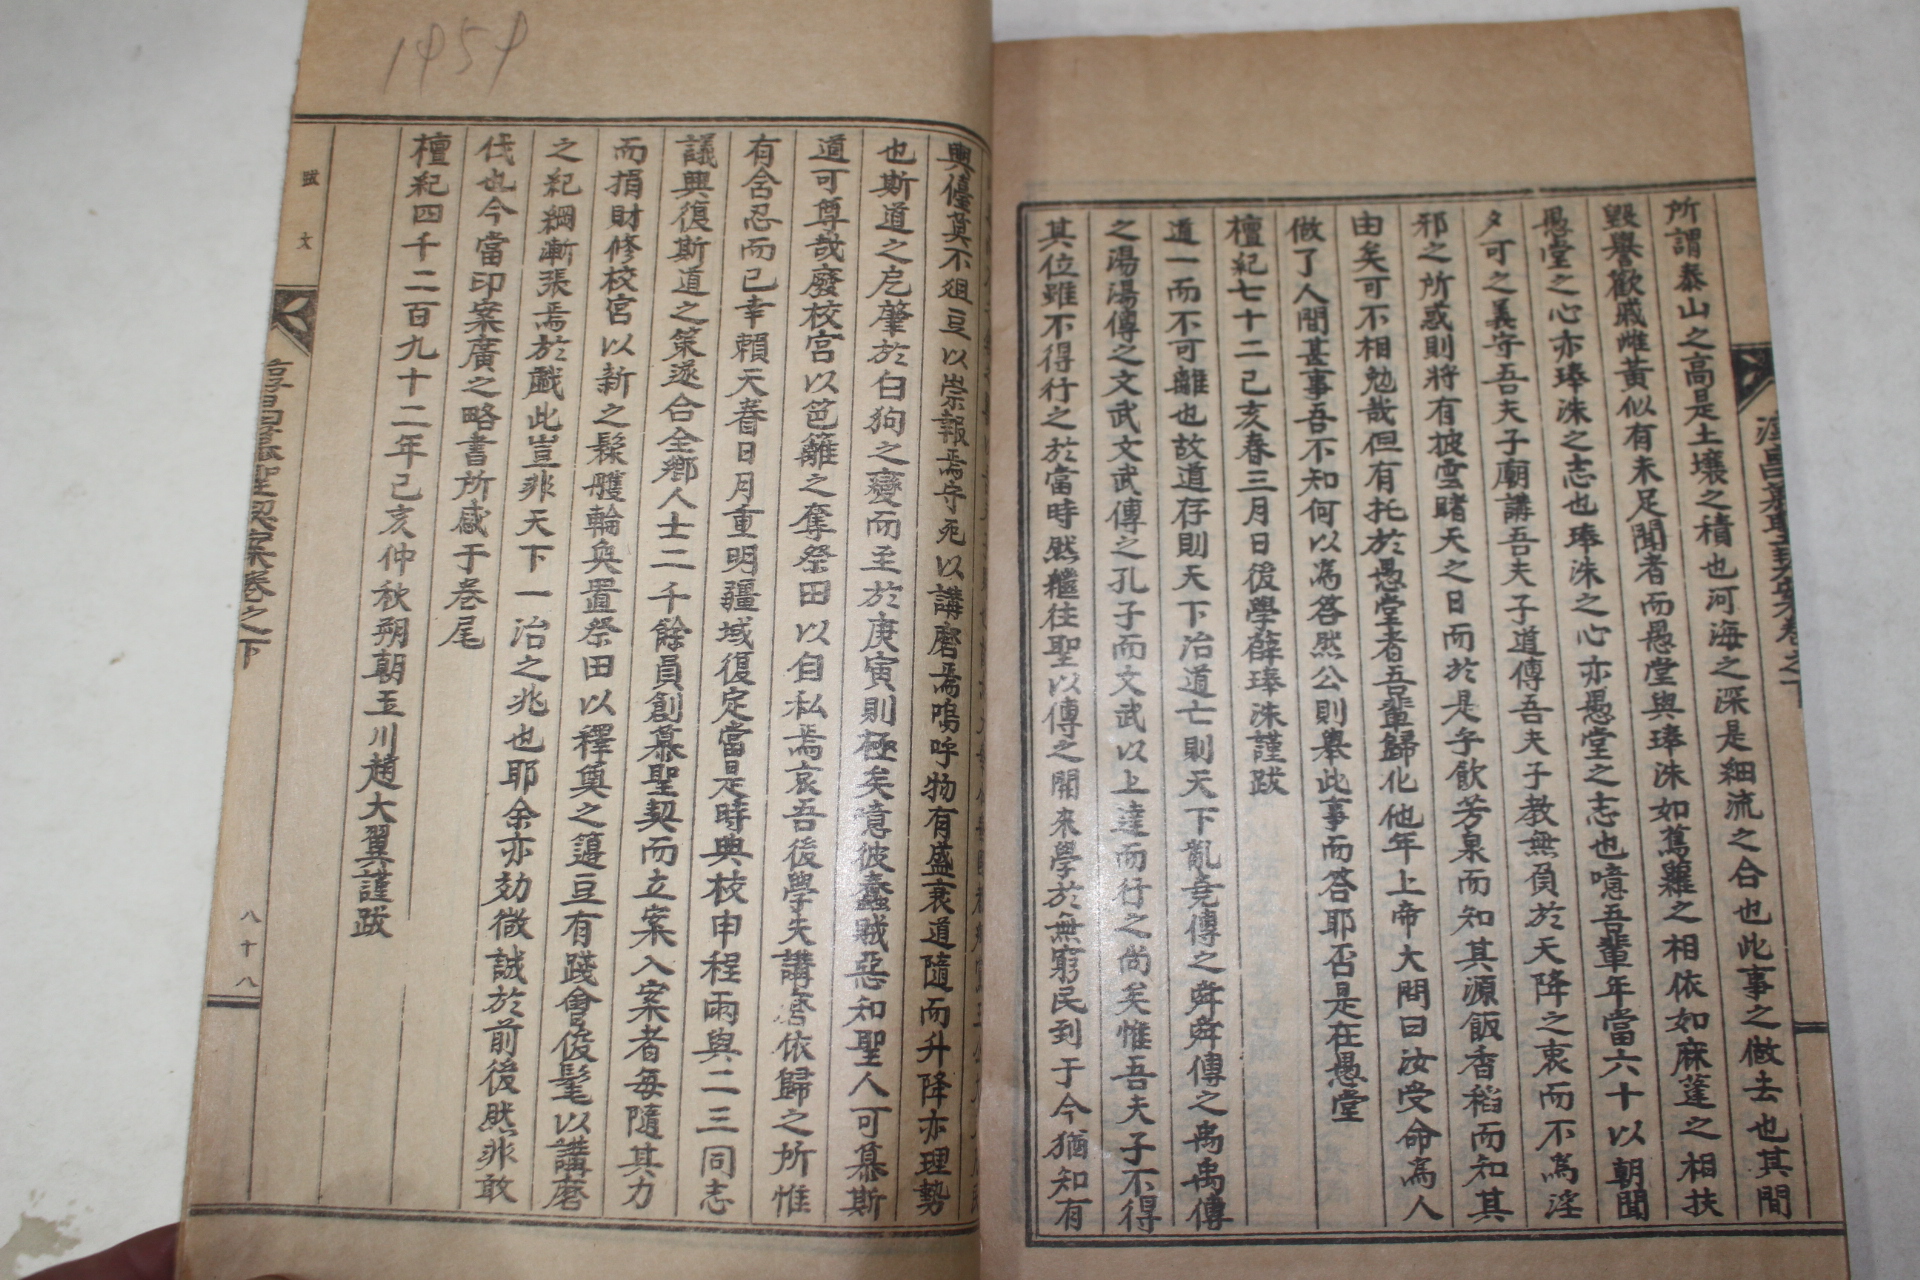 所謂泰山之高是土壤之積也河海之深是細流之合也此事之做去也其間
毀譽歡戚雌黃似有未足聞者而愚堂與琫洙如蔦蘿之相依如麻蓬之相扶
愚堂之心亦琫洙之志也琫洙之心亦愚堂之志也噫吾輩年當六十以朝聞
夕可之義守吾夫子廟講吾夫子道傳吾夫子教無負於天降之衷而不爲淫
邪之所惑則將有披雲睹天之日而於是乎飮芳泉而知其源飯香稻而知其
由矣可不相勉哉但有托於愚堂者吾輩歸化他年上帝大問曰汝受命爲人
做了人間甚事吾不知何以爲答然公則擧此事而答耶否是在愚堂
檀紀七十二己亥春三月日後學薛琫洙謹跋
道一而不可離也故道存則天下治道亡則天下亂堯傳之舜舜傳之禹禹傳
之湯湯傳之文武文武傳之孔子而文武以上達而行之尚矣惟吾夫子不得
其位雖不得行之於當時然繼往聖以傳之開來學於無窮民到于今猶知有
興儓莫不俎豆以崇報焉守死以講磨焉嗚呼物有盛衰道隨而升降亦理勢
也斯道之戹肇於白狗之變而至於庚寅則極矣憶彼蠢賊惡知聖人可慕斯
道可尊哉廢校宮以笆籬之奪祭田以自私焉哀吾後學失講磨依歸之所惟
有含忍而已幸賴天眷日月重明疆域復定當是時典校申程雨與二三同志
議興復斯道之策逐合全鄉人士二千餘員創慕聖契而立案入案者每隨其力
而捐財修校宮以新之髹雘輪奐置祭田以釋奠之籩豆有踐會俊髦以講磨
之紀綱漸張焉於戱此豈非天下一治之兆也耶余亦効微誠於前後然非敢
伐也今當印案廣之略書所感于卷尾
檀紀四千二百九十二年己亥仲秋朔朝玉川趙大翼謹跋
跋文
慕聖契案卷之下
八十八